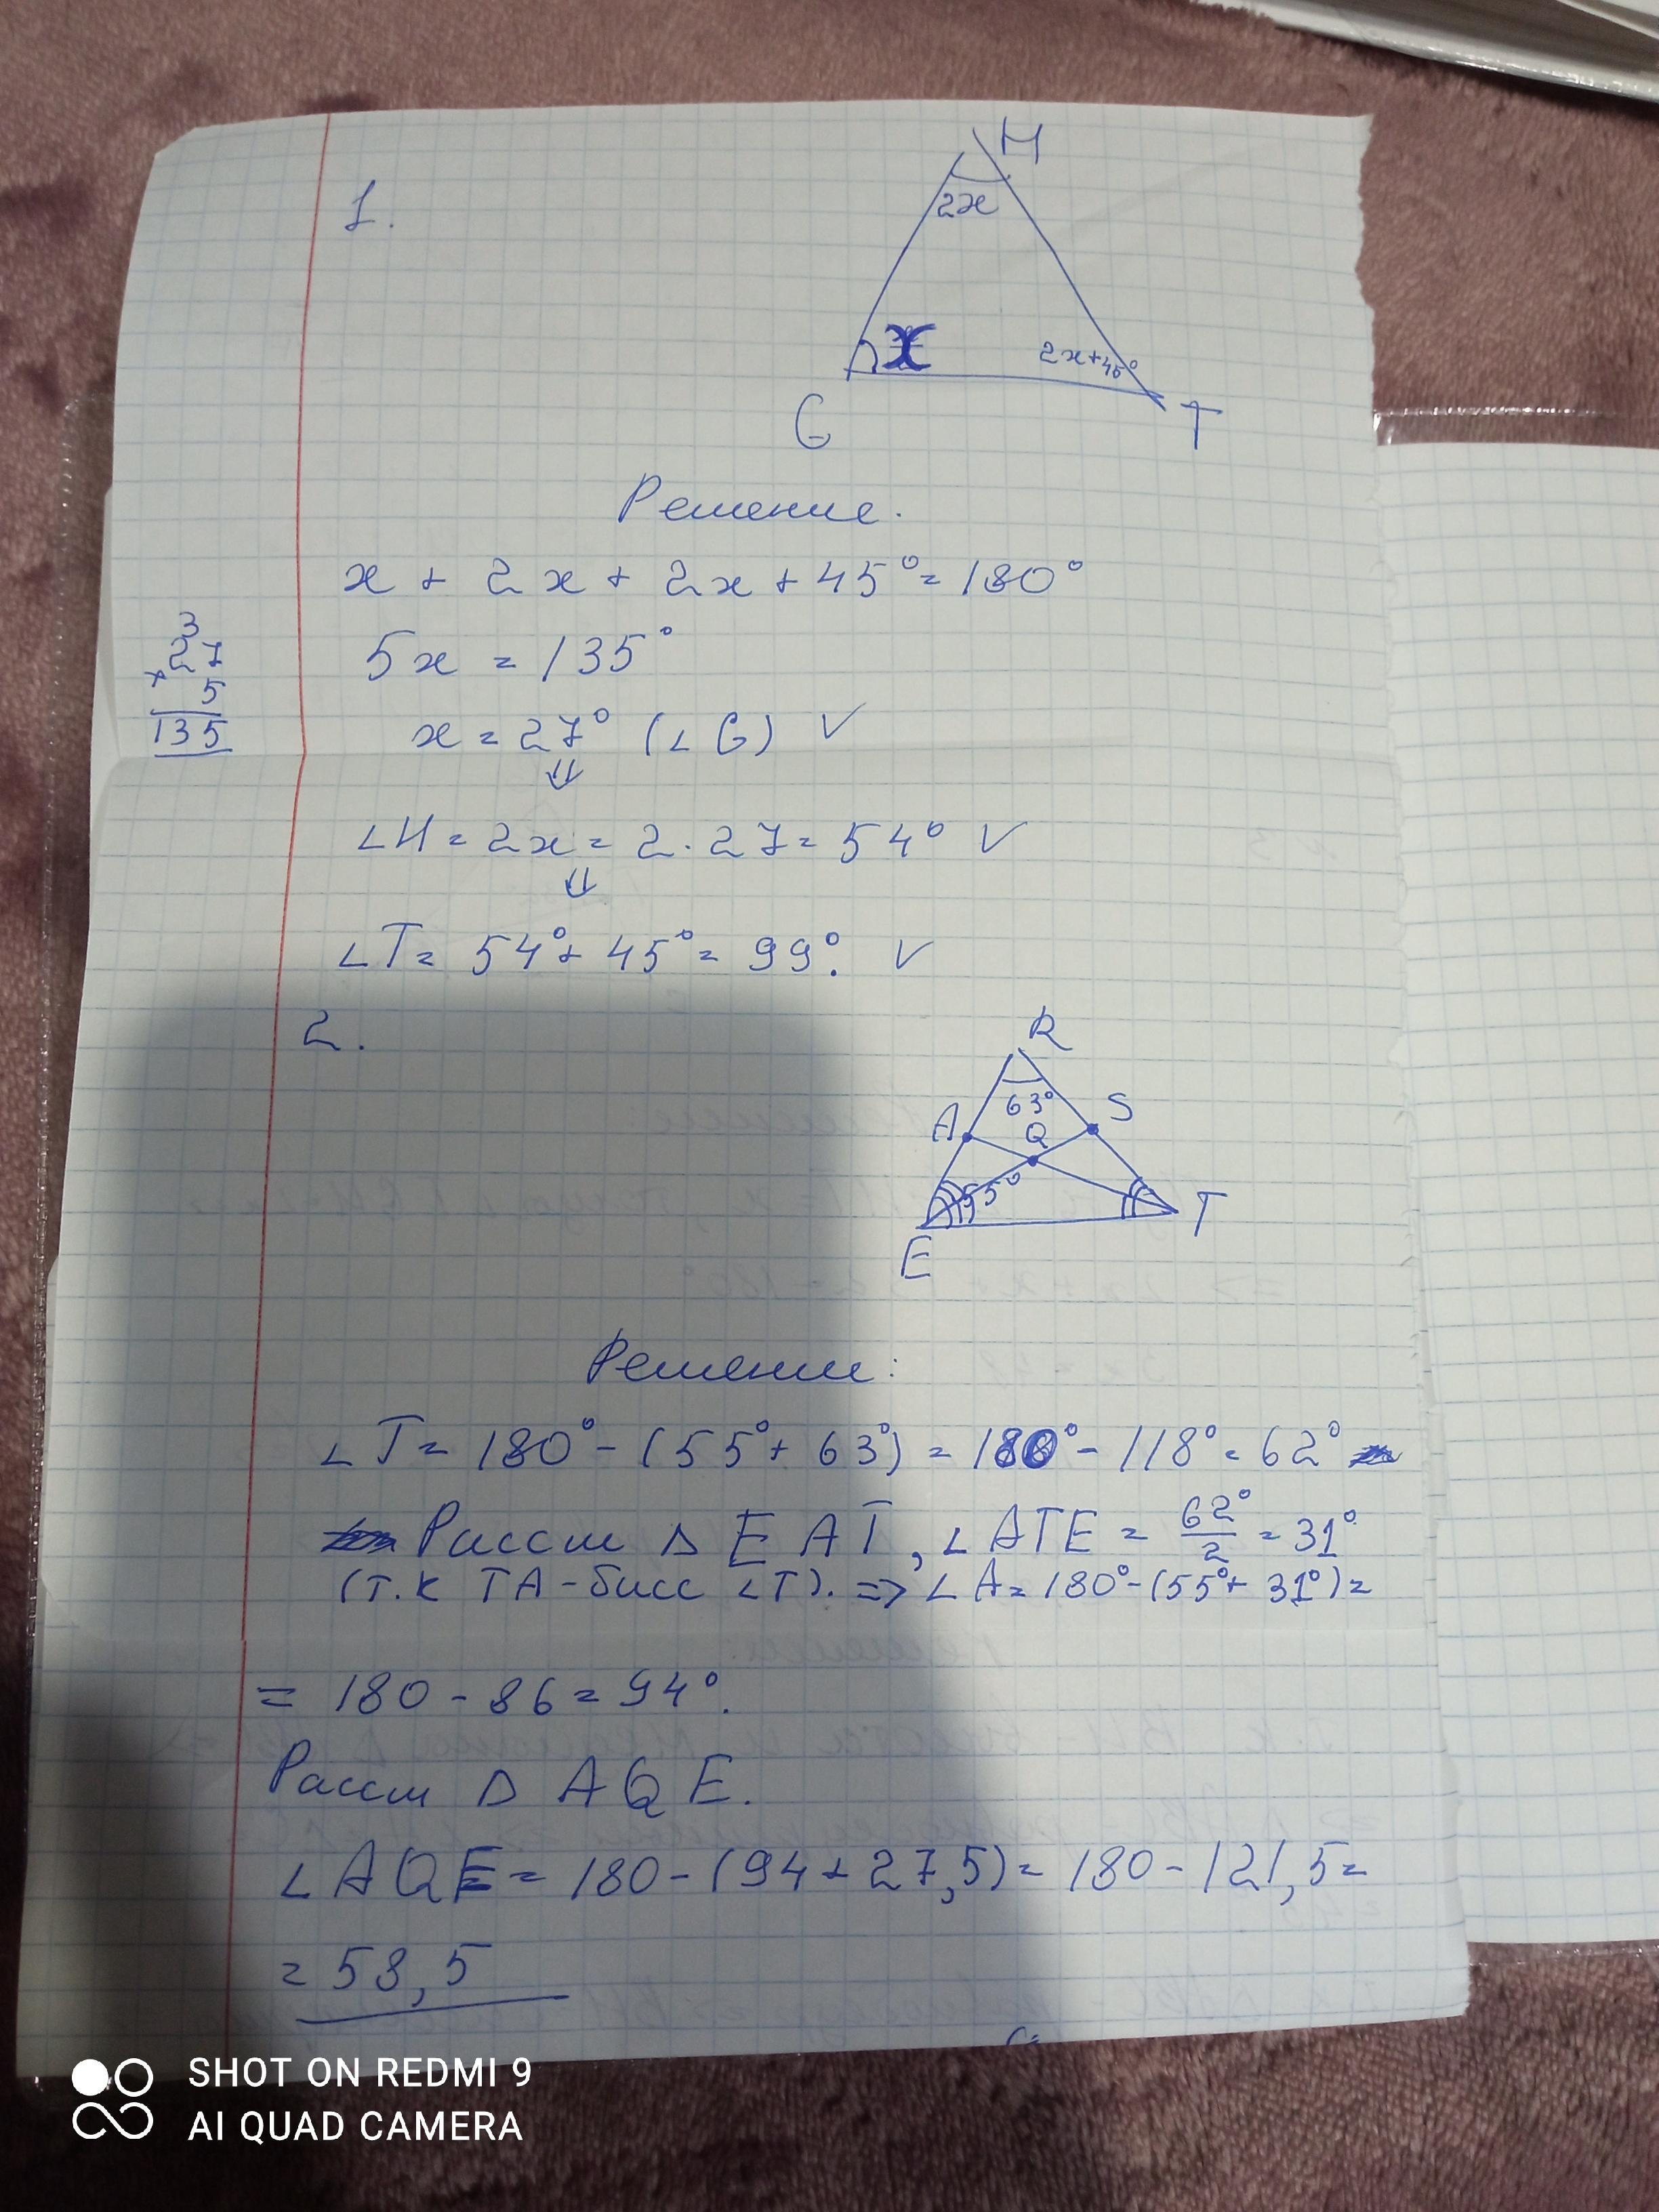 1.
H
2x
x
2x+45°
G
T
Решение.
x + 2x + 2x + 45° = 180°
3
27
× 5
135
5x = 135°
x = 27° (∠G) V
⇓
∠H = 2x = 2·27 = 54° V
⇓
∠T = 54° + 45° = 99°. V
2.
R
63°
A
S
Q
55°
T
E
Решение:
∠T = 180° - (55° + 63°) = 180° - 118° = 62°
Рассм Δ EAT, ∠ATE = 62°/2 = 31°
(т.к TA - бисс ∠T). => ∠A = 180° - (55° + 31°) =
= 180 - 86 = 94°.
Рассм Δ AQE.
∠AQE = 180 - (94 + 27,5) = 180 - 121,5 =
= 58,5
SHOT ON REDMI 9
AI QUAD CAMERA